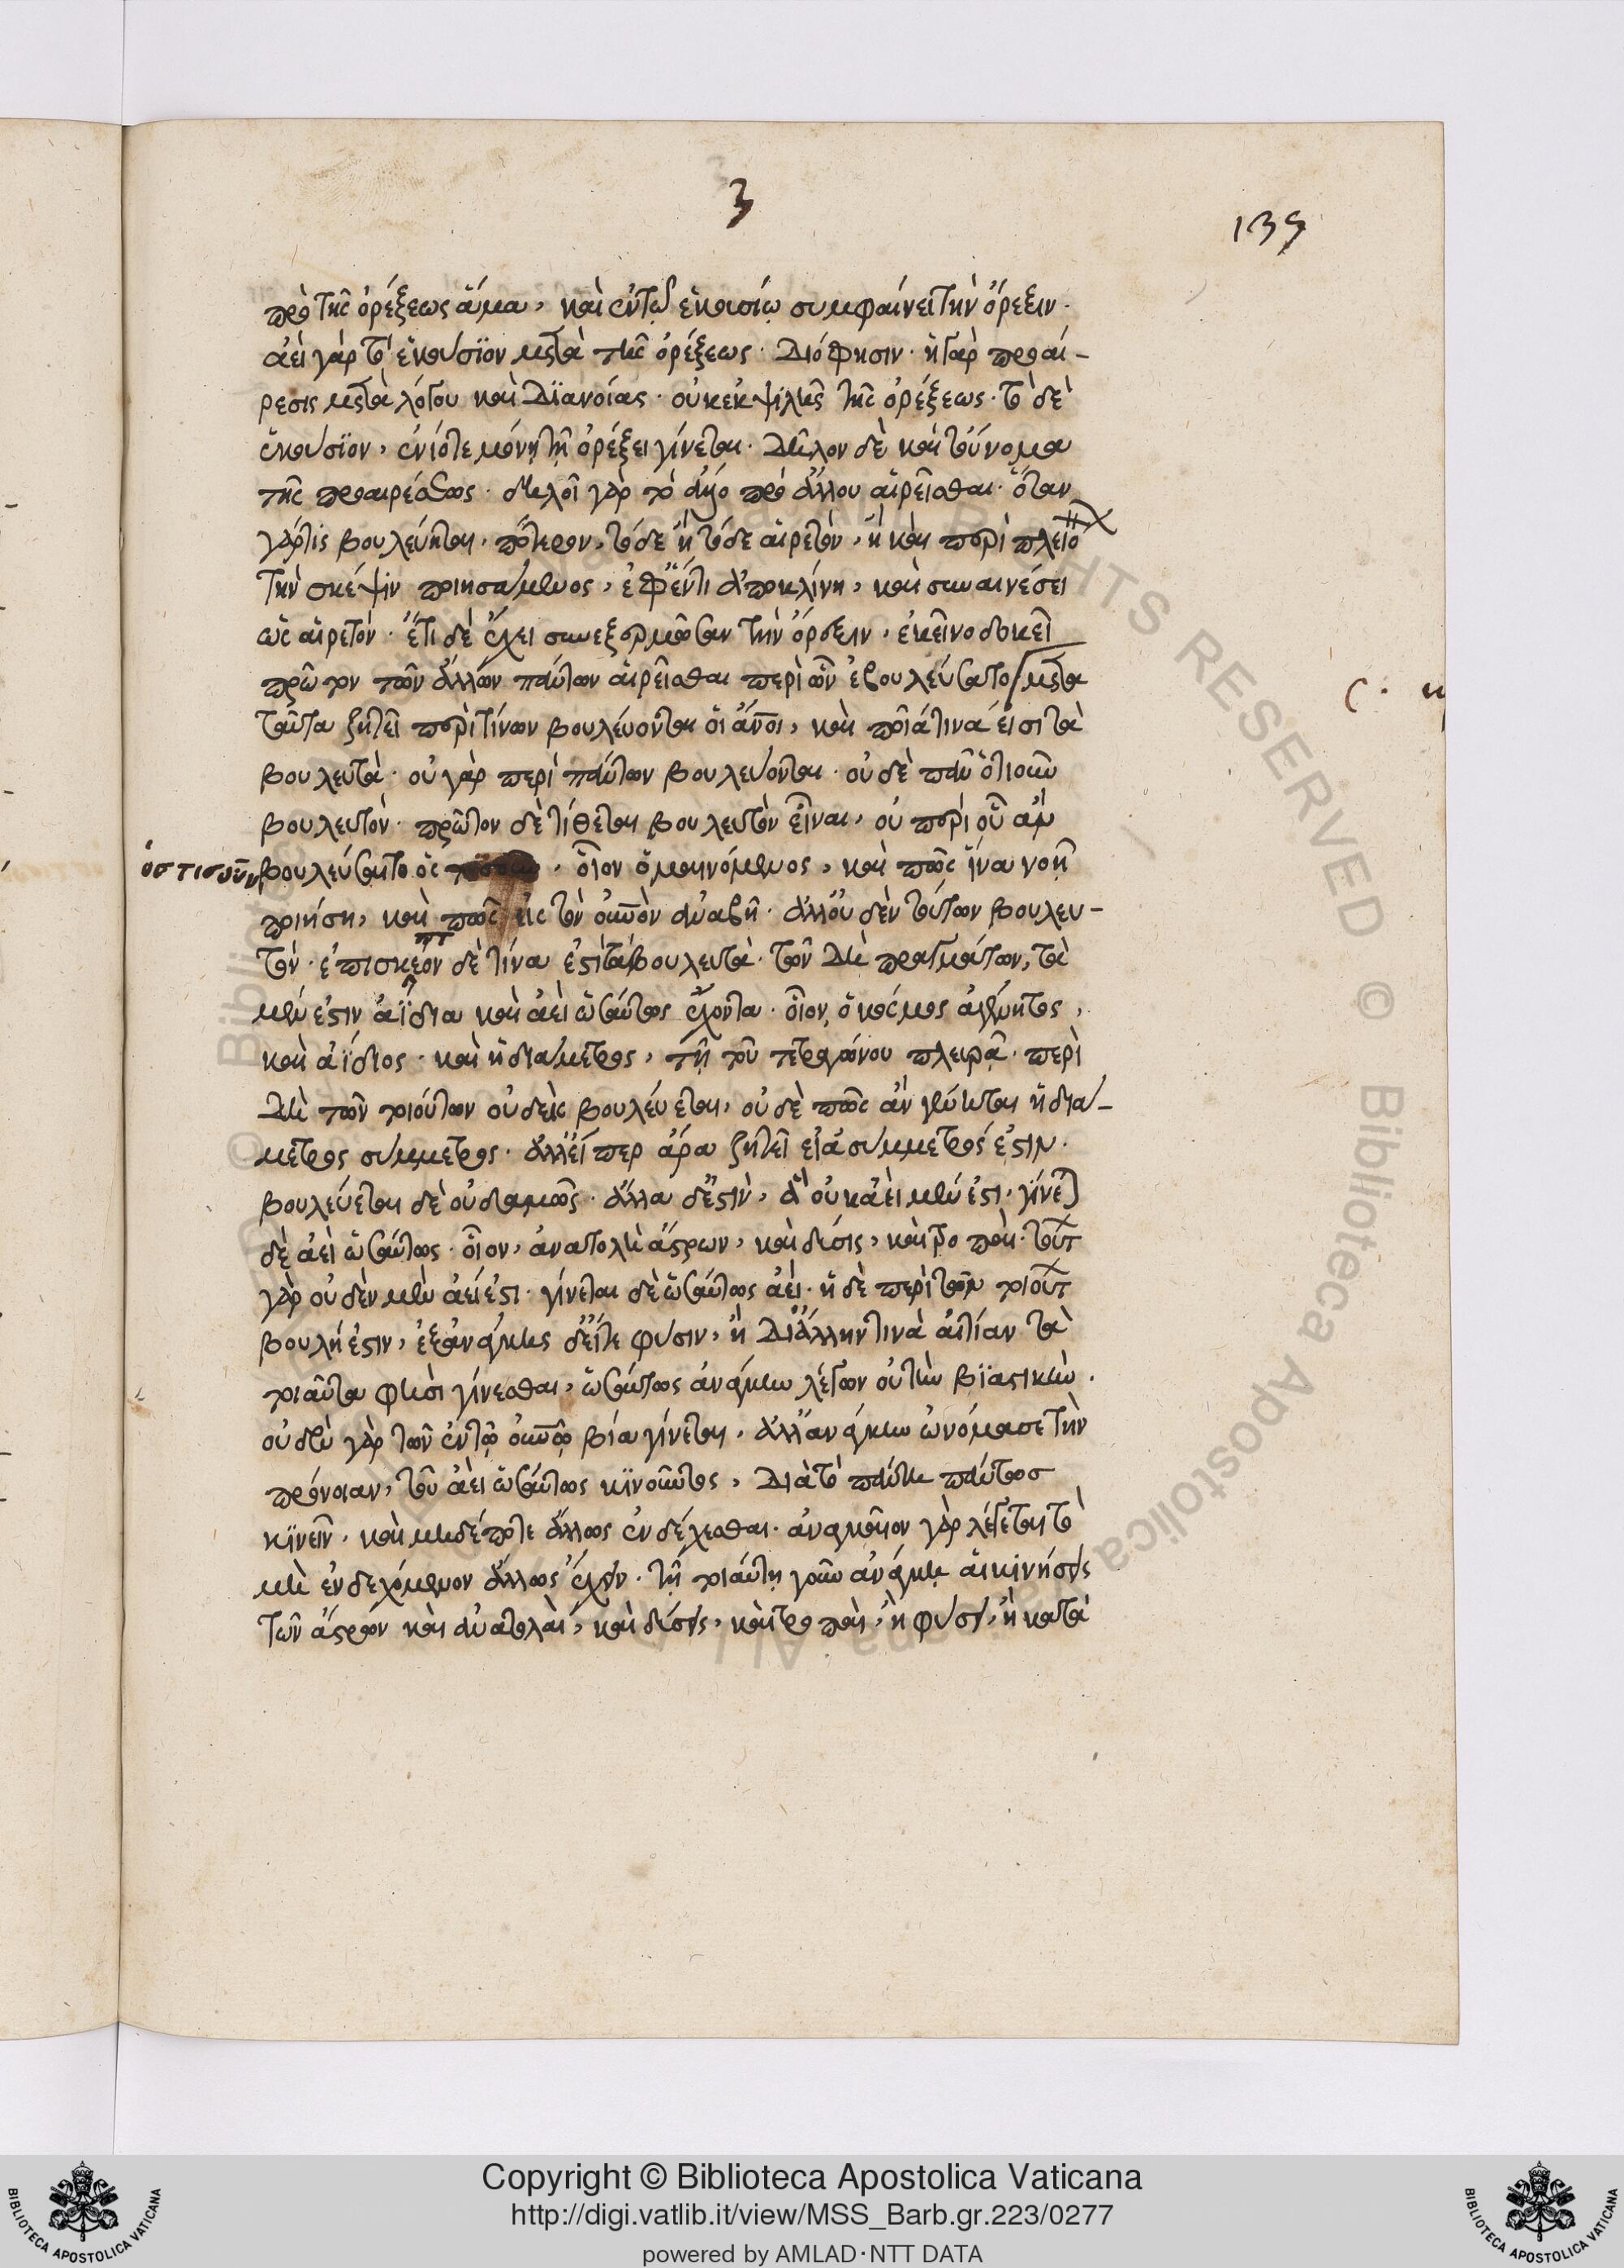 3
139
πρὸ τῆς ὀρέξεως ἅμα, καὶ ἐν τῷ ἑκουσίῳ συμφαίνει τὴν ὄρεξιν.
ἀεὶ γὰρ τὸ ἑκούσϊον μετὰ τῆς ὀρέξεως. Διό φησιν. ἡ γὰρ προαί-
ρεσις μετὰ λόγου καὶ Δϊανοίας. οὐκ ἐκ ψιλῆς τῆς ὀρέξεως. τὸ δὲ
ἑκούσϊον, ἐνίοτε μόνῃ τῇ ὀρέξει γίνεται. Δῆλον δὲ καὶ τοὔνομα
τῆς προαιρέσεως. δηλοῖ γὰρ τὸ ἄλλο πρὸ ἄλλου αἱρεῖσθαι. ὅταν
γάρ τις βουλεύηται. πότερον, τόδε ἢ τόδε αἱρετὸν, καὶ περὶ πλειο
τὴν σκέψιν ποιησάμενος, ἐφ' ἕν τι ἀποκλίνῃ, καὶ συναινέσει
ὡς αἱρετόν. ἔτι δὲ ἔχει συνεξορμῶσαν τὴν ὄρεξιν, ἐκεῖνο δοκεῖ
πρῶτον τῶν ἄλλων πάντων αἱρεῖσθαι περὶ ὧν ἐβουλεύσατο / μετὰ
ταῦτα ζητεῖ περὶ τίνων βουλεύονται οἱ ἄνοι, καὶ ποῖά τινά εἰσι τὰ
βουλευτά. οὐ γὰρ περὶ πάντων βουλεύονται. οὐδὲ πᾶν ὁτιοῦν
βουλευτόν. πρῶτον δὲ τίθεται βουλευτὸν εἶναι, οὐ περὶ οὗ ἂν
ὁστισοῦν βουλεύσαιτο. οἷον ὁ μαινόμενος, καὶ πῶς ἵνα νοῇ
ποιήσῃ, καὶ πῶς εἰς τὸν οὐνὸν ἀναβῇ. ἀλλ' οὐδὲν τούτων βουλευ-
τόν. ἐπισκεπτέον δὲ τίνα ἐστὶ τὰ βουλευτά. τῶν Δὲ πραγμάτων, τὰ
μέν ἐστιν ἀΐδια καὶ ἀεὶ ὡσαύτως ἔχοντα. οἷον, ὁ κόσμος ἀγένητος,
καὶ ἀΐδιος. καὶ ἡ διάμετρος, τῇ τοῦ τετραγώνου πλευρᾷ. περὶ
Δὲ τῶν τοιούτων οὐδεὶς βουλεύεται, οὐδὲ πῶς ἂν γένηται ἡ διά-
μετρος σύμμετρος. ἀλλ' εἴπερ ἄρα ζητεῖ εἰ ἀσύμμετρός ἐστιν.
βουλεύεται δὲ οὐδαμῶς. ἄλλα δ' ἐστὶν, ἃ οὐκ ἀεὶ μέν ἐστι. γίνε
δὲ ἀεὶ ὡσαύτως. οἷον, ἀνατολὴ ἄστρων, καὶ δύσις, καὶ τροπαί. τούτ
γὰρ οὐδὲν μὲν ἀεί ἐστι. γίνεται δὲ ὡσαύτως ἀεί. ἡ δὲ περὶ τῶν τοιούτ
βουλή ἐστιν, ἐξ ἀνάγκης δ' εἴτε φύσιν, ἢ Δι' ἄλλην τινὰ αἰτίαν τὰ
τοιαῦτα φησὶ γίνεσθαι, ὡσαύτως ἀνάγκην λέγων οὐ τὴν βϊαστικὴν.
οὐδὲν γὰρ τῶν ἐν τῷ οὐνῷ βίᾳ γίνεται. ἀλλ' ἀνάγκην ὠνόμασε τὴν
πρόνοιαν, τοῦ ἀεὶ ὡσαύτως κϊνοῦντος, Διὰ τὸ πάντη πάντως
κϊνεῖν. καὶ μηδέποτε ἄλλως ἐνδέχεσθαι. ἀναγκαῖον γὰρ λέγεται τὸ
μὴ ἐνδεχόμενον ἄλλως ἔχειν. τῇ τοιαύτῃ γοῦν ἀνάγκῃ αἱ κινήσεις
τῶν ἄστρων καὶ ἀνατολαί, καὶ δύσεις, καὶ τροπαί, ἢ φύσει, ἢ κατὰ
Copyright © Biblioteca Apostolica Vaticana
http://digi.vatlib.it/view/MSS_Barb.gr.223/0277
powered by AMLAD·NTT DATA